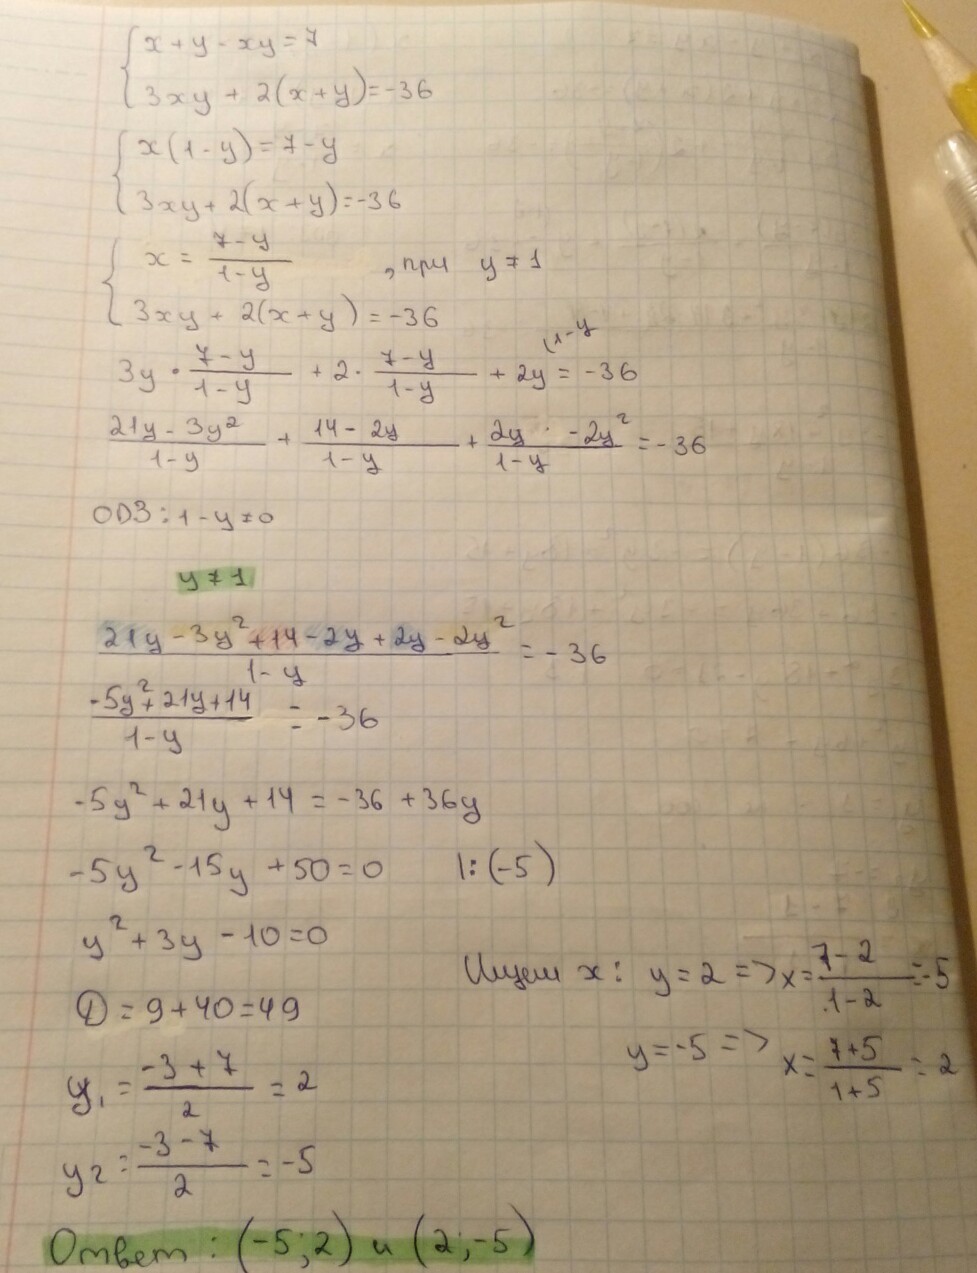 x + y - xy = 7
3xy + 2(x+y) = -36
x(1-y) = 7-y
3xy + 2(x+y) = -36
x = \frac{7-y}{1-y} , при y ≠ 1
3xy + 2(x+y) = -36
3y · \frac{7-y}{1-y} + 2 · \frac{7-y}{1-y} + 2y^{(1-y} = -36
\frac{21y - 3y²}{1-y} + \frac{14 - 2y}{1-y} + \frac{2y - 2y²}{1-y} = -36
ОДЗ: 1-y ≠ 0
y ≠ 1
\frac{21y - 3y² + 14 - 2y + 2y - 2y²}{1-y} = -36
\frac{-5y² + 21y + 14}{1-y} = -36
-5y² + 21y + 14 = -36 + 36y
-5y² - 15y + 50 = 0 |:(-5)
y² + 3y - 10 = 0
D = 9 + 40 = 49
y₁ = \frac{-3+7}{2} = 2
y₂ = \frac{-3-7}{2} = -5
Ищем x: y = 2 => x = \frac{7-2}{1-2} = -5
y = -5 => x = \frac{7+5}{1+5} = 2
Ответ: (-5; 2) и (2; -5)